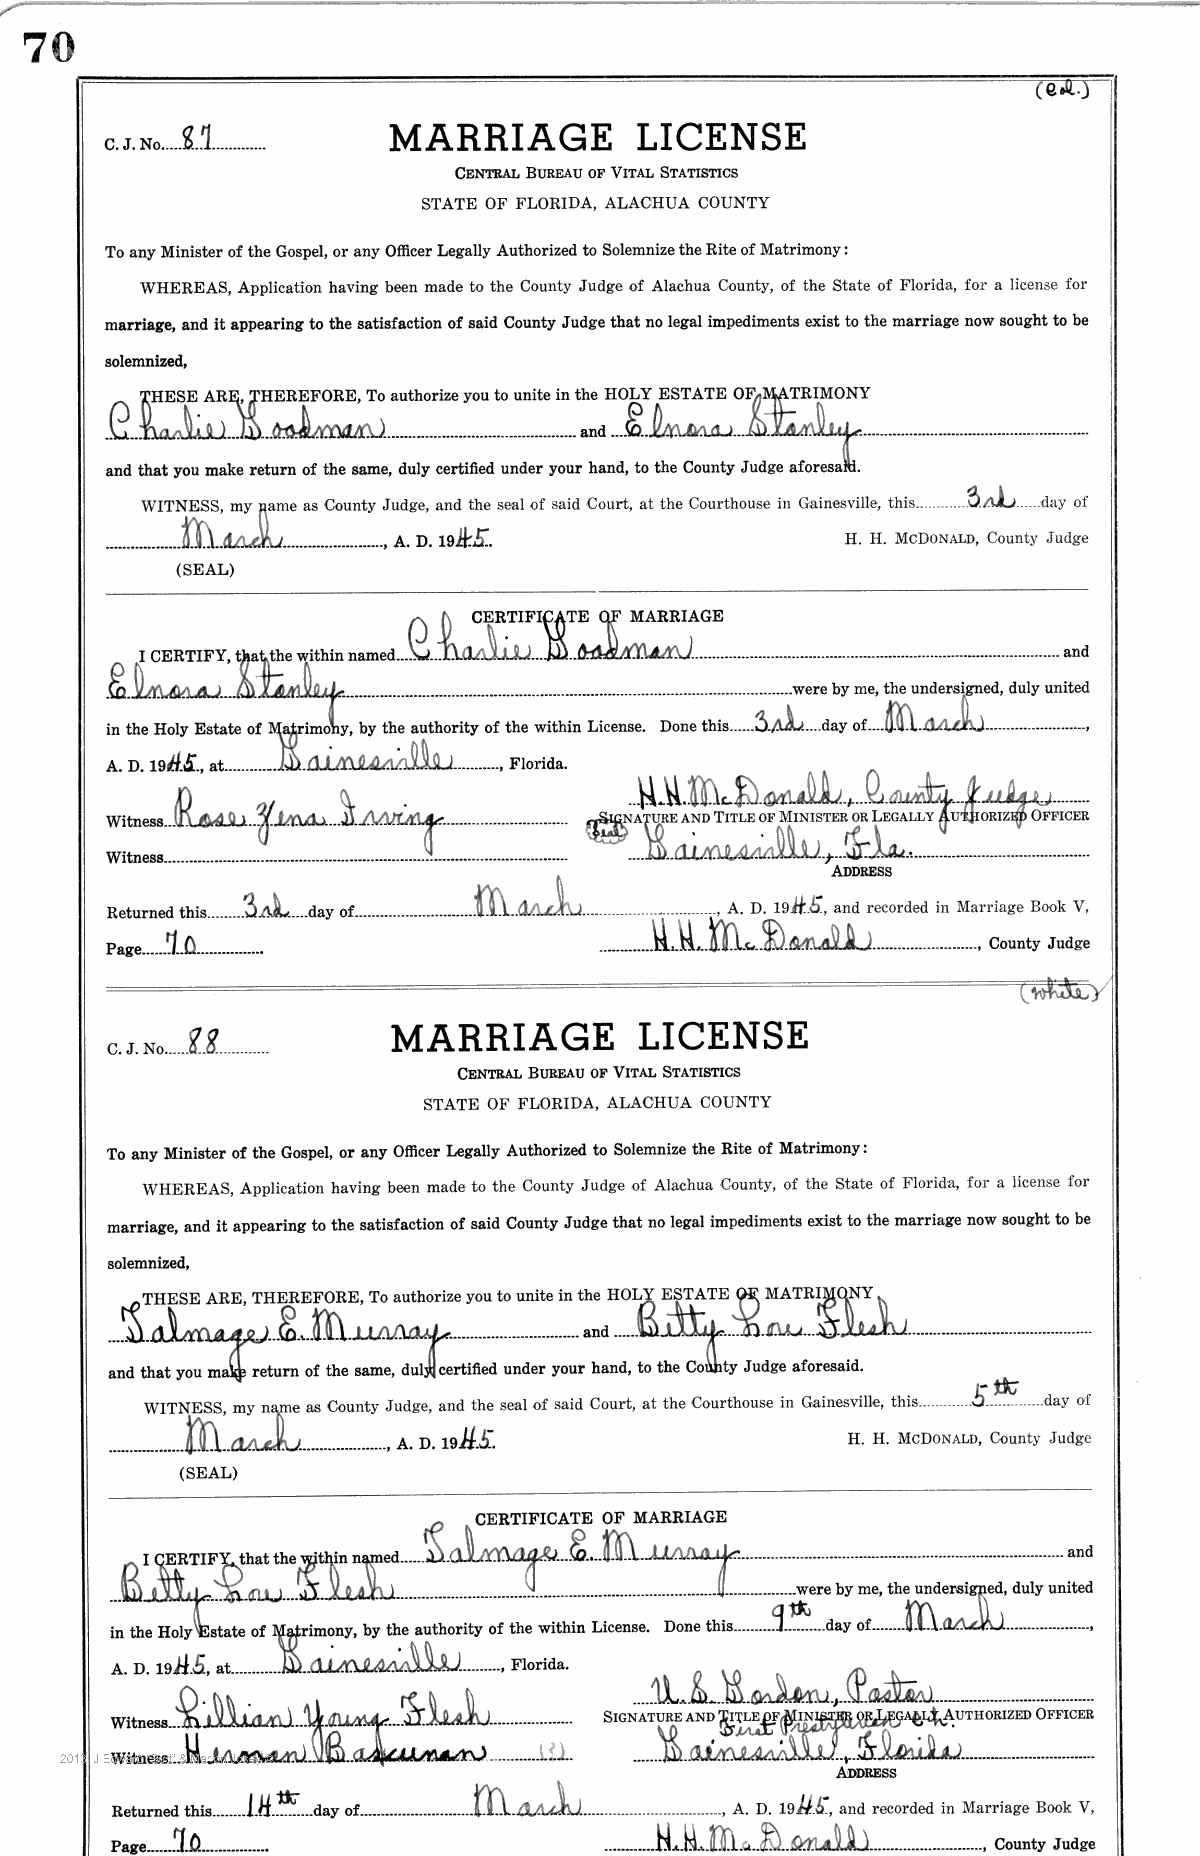 70
(Col.)
C. J. No. 87
MARRIAGE LICENSE
CENTRAL BUREAU OF VITAL STATISTICS
STATE OF FLORIDA, ALACHUA COUNTY
To any Minister of the Gospel, or any Officer Legally Authorized to Solemnize the Rite of Matrimony:
WHEREAS, Application having been made to the County Judge of Alachua County, of the State of Florida, for a license for
marriage, and it appearing to the satisfaction of said County Judge that no legal impediments exist to the marriage now sought to be
solemnized,
THESE ARE, THEREFORE, To authorize you to unite in the HOLY ESTATE OF MATRIMONY
Charlie Goodman and Elnora Stanley
and that you make return of the same, duly certified under your hand, to the County Judge aforesaid.
WITNESS, my name as County Judge, and the seal of said Court, at the Courthouse in Gainesville, this 3rd day of
March, A. D. 1945. H. H. MCDONALD, County Judge
(SEAL)
CERTIFICATE OF MARRIAGE
I CERTIFY, that the within named Charlie Goodman and
Elnora Stanley were by me, the undersigned, duly united
in the Holy Estate of Matrimony, by the authority of the within License. Done this 3rd day of March,
A. D. 1945, at Gainesville, Florida.
H. H. McDonald, County Judge
Witness Rose Zena Irving SIGNATURE AND TITLE OF MINISTER OR LEGALLY AUTHORIZED OFFICER
(Seal)
Witness Gainesville, Fla.
ADDRESS
Returned this 3rd day of March, A. D. 1945, and recorded in Marriage Book V,
Page 70 H. H. McDonald, County Judge
(white)
C. J. No. 88
MARRIAGE LICENSE
CENTRAL BUREAU OF VITAL STATISTICS
STATE OF FLORIDA, ALACHUA COUNTY
To any Minister of the Gospel, or any Officer Legally Authorized to Solemnize the Rite of Matrimony:
WHEREAS, Application having been made to the County Judge of Alachua County, of the State of Florida, for a license for
marriage, and it appearing to the satisfaction of said County Judge that no legal impediments exist to the marriage now sought to be
solemnized,
THESE ARE, THEREFORE, To authorize you to unite in the HOLY ESTATE OF MATRIMONY
Talmage E. Murray and Betty Lou Flesh
and that you make return of the same, duly certified under your hand, to the County Judge aforesaid.
WITNESS, my name as County Judge, and the seal of said Court, at the Courthouse in Gainesville, this 5th day of
March, A. D. 1945. H. H. MCDONALD, County Judge
(SEAL)
CERTIFICATE OF MARRIAGE
I CERTIFY, that the within named Talmage E. Murray and
Betty Lou Flesh were by me, the undersigned, duly united
in the Holy Estate of Matrimony, by the authority of the within License. Done this 9th day of March,
A. D. 1945, at Gainesville, Florida.
U. S. Gordon, Pastor
Witness Lillian Young Flesh SIGNATURE AND TITLE OF MINISTER OR LEGALLY AUTHORIZED OFFICER
First Presbyterian Ch.
Witness Herman (?) Gainesville, Florida
ADDRESS
Returned this 14th day of March, A. D. 1945, and recorded in Marriage Book V,
Page 70 H. H. McDonald, County Judge